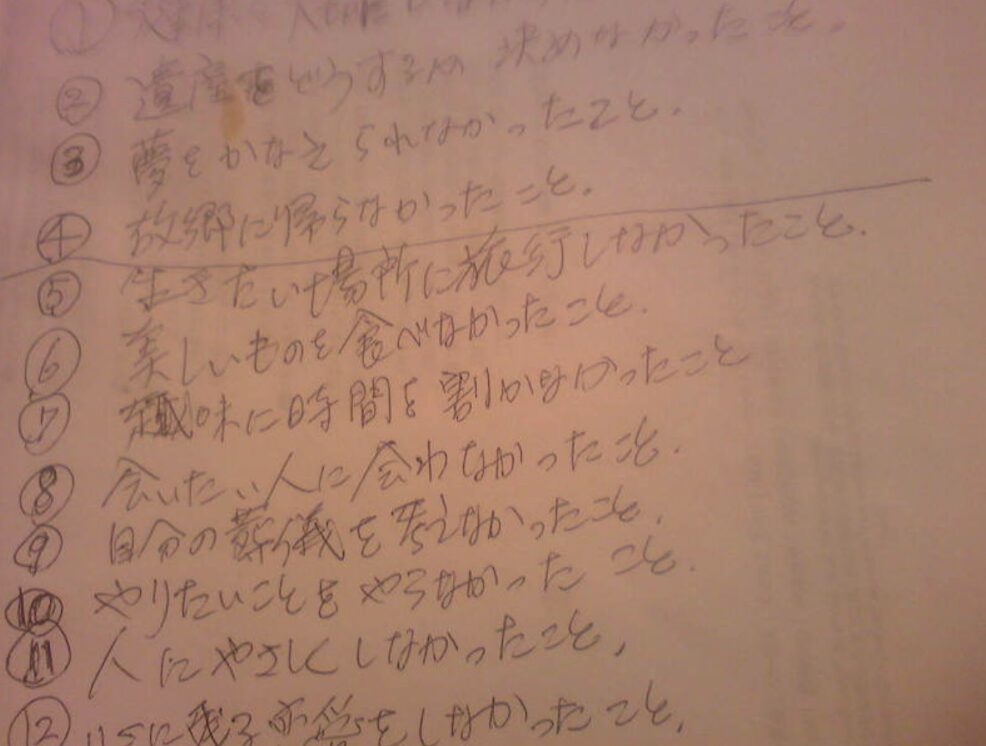 ①
② 遺産をどうするか 決めなかったこと。
③ 夢をかなえられなかったこと。
④ 故郷に帰らなかったこと。
⑤ 生きたい場所に旅行しなかったこと。
⑥ 美しいものを食べなかったこと。
⑦ 趣味に時間を割かなかったこと
⑧ 会いたい人に会わなかったこと。
⑨ 自分の葬儀を考えなかったこと。
⑩ やりたいことをやらなかった こと。
⑪ 人にやさしくしなかったこと。
⑫ 心に残る恋愛をしなかったこと。